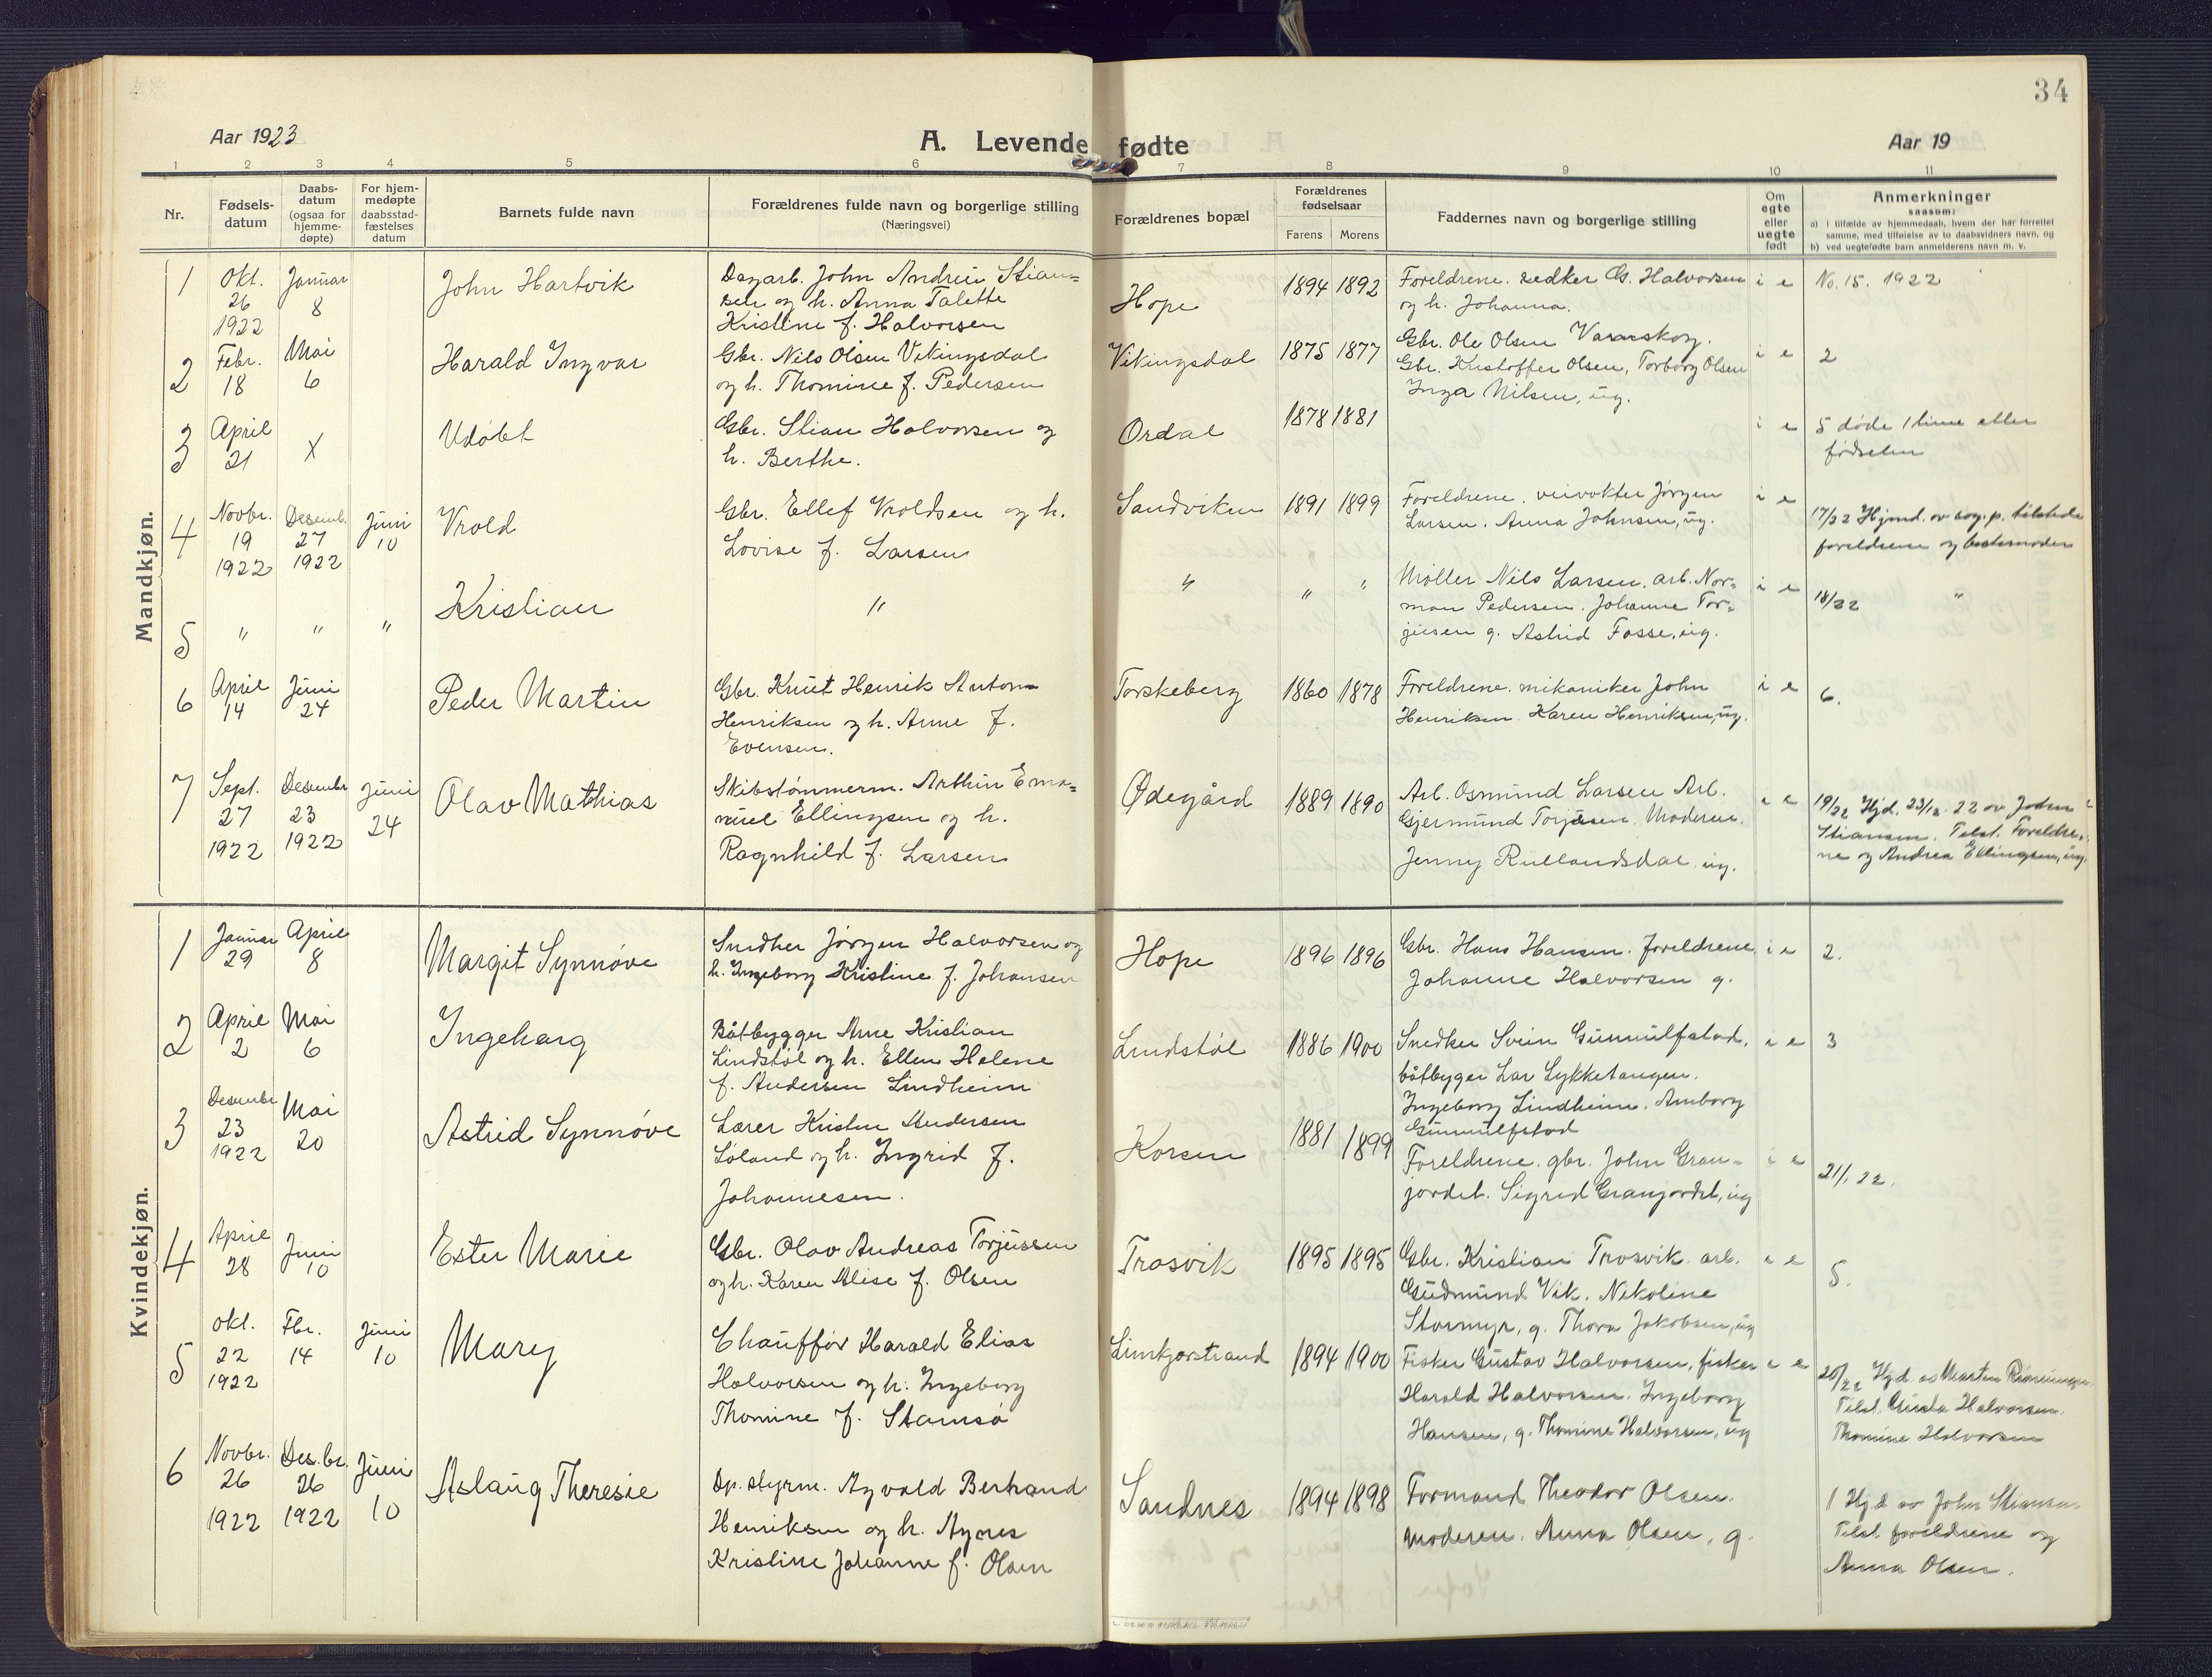 34
Aar 1923
A. Levende fødte
Aar 19
1 2 3 4 5 6 7 8 9 10 11
Nr.
Fødsels-
datum
Daabs-
datum
(ogsaa for
hjemme-
døpte)
For hjem-
medøpte
daabsstad-
fæstelses
datum
Barnets fulde navn
Forældrenes fulde navn og borgerlige stilling
(Næringsvei)
Forældrenes bopæl
Forældrenes
fødselsaar
Farens Morens
Faddernes navn og borgerlige stilling
Om
egte
eller
uegte
født
Anmerkninger
saasom:
a) i tilfælde av hjemmedaab, hvem der har forrettet
samme, med tilføielse av to daabsvidners navn, og
b) ved uegtefødte barn anmelderens navn m. v.
Mandkjøn.
1
Okt.
26
1922
Januar
8
John Hartvik
Dagarb. John Andreu Stian-
sen og h. Anna Talette
Kristine f. Halvorsen
Hope
1894 1892
Foreldrene. G. Halvorsen
og h. Johanna.
i e
No. 15. 1922
2
Febr.
18
Mai
6
Harald Ingvar
Gbr. Nils Olsen Vikingsdal
og h. Thomine f. Pedersen
Vikingsdal
1875 1877
Gbr. Ole Olsen Vaanskog.
Gbr. Kristoffer Olsen, Torborg Olsen
Inga Nilsen, ug.
i e
2
3
April
21
X
Udøbt
Gbr. Stian Halvorsen og
h. Berthe.
Ordal
1878 1881
i e
5 døde 1 time etter
fødselen
4
Novbr.
19
1922
Desemb.
27
1922
Juni
10
Vrold
Gbr. Ellef Vroldsen og h.
Lovise f. Larsen
Sandviken
1891 1899
Foreldrene, veivokter Jørgen
Larsen. Anna Johnsen, ug.
i e
17/22 Hjmd. av sog.p. tilstede
foreldrene og bestemoder
5
" " "
Kristian
"
" " "
Møller Nils Larsen. arb. Nor-
man Pedersen. Johanne Tor-
jusen g. Astrid Fosse, ug.
i e
18/22 "
6
April
14
Juni
24
Peder Martin
Gbr. Knut Henrik Anton
Henriksen og h. Anne f.
Evensen.
Torskeberg
1860 1878
Foreldrene. mikaniker John
Henriksen. Karen Henriksen, ug.
i e
6.
7
Sept.
27
1922
Desembr
23
1922
Juni
24
Olav Mathias
Skibstømmerm. Arthur Ema-
nuel Ellingsen og h.
Ragnhild f. Larsen
Ødegård
1889 1890
Arb. Osmund Larsen Arb.
Gjermund Torjusen. Moderen.
Jenny Rullandsdal ug.
i e
19/22 Hjd. 23/12. 22 av
Stiansen. Tilst. Foreldre-
ne og Andrea Ellingsen, ug.
Kvindekjøn.
1
Januar
29
April
8
Margit Synnøve
Snedker Jørgen Halvorsen og
h. Ingeborg Kristine f. Johansen
Hope
1896 1896
Gbr. Hans Hansen. foreldrene,
Johanne Halvorsen g.
i e
2.
2
April
2
Mai
6
Ingeborg
Båtbygger Arne Kristian
Lindstøl og h. Ellen Helene
f. Andersen Lindheim
Lindstøl
1886 1900
Snedker Svein Gunnulfstad,
båtbyger Lar Lykketangen.
Ingeborg Lindheim. Amborg
Gunnulfstad
i e
3
3
Desembr
23
1922
Mai
20
Astrid Synnøve
Lærer Kristen Andersen
Løland og h. Ingrid f.
Johannesen.
Korsen
1881 1899
Foreldrene. gbr. John Gran-
jordet. Sigrid Granjordet, ug
i e
21/. 22.
4
April
28
Juni
10
Ester Marie
Gbr. Olav Andreas Torjussen
og h. Karen Alise f. Olsen
Trosvik
1895 1895
Gbr. Kristian Trosvik. arb.
Gudmund Vik. Nikoline
Stormyr, g. Thora Jakobsen, ug
i e
5.
5
Okt.
22
1922
Fbr.
14
Juni
10
Mary
Chauffør Harald Elias
Halvorsen og h. Ingeborg
Thomine f. Stamsø
Limkjærstrand
1894 1900
Fisker Gustav Halvorsen, fisker
Harald Halvorsen. Ingeborg
Hansen, g. Thomine Halvorsen, ug
i e
20/22 Hjd. av Morten Rønningen.
Tilst. Gusta Halvorsen.
Thomine Halvorsen
6
Novbr.
26
1922
Des.br.
26
1922
Juni
10
Aslaug Theresie
Dp. styrm. Agvald Bertrand
Henriksen og h. Agnes
Kristine Johanne f. Olsen
Sandnes
1894 1898
Formand Theodor Olsen.
Moderen. Anna Olsen, g.
1 Hjd av John Stiansen.
Tilst. foreldrene og
Anna Olsen.